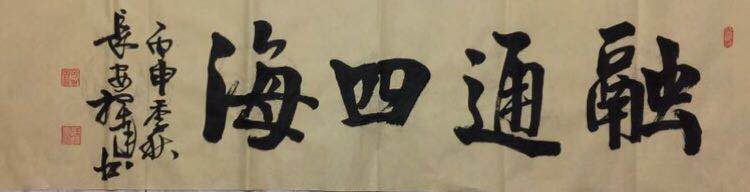 融通四海
丙申季秋
長安書